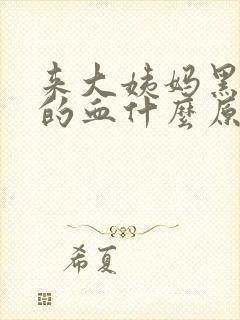 来大姨妈黑
的血什麼原
希夏